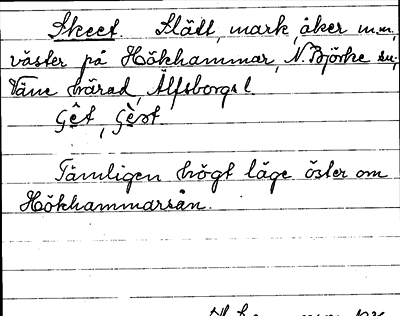 Skeet. Slätt, mark, åker m.m.,
väster på Hökhammar, N. Björke sn,
Väne härad, Älfsborgs l.
Gêt, Gèst.
Tämligen högt läge öster om
Hökhammarsån.